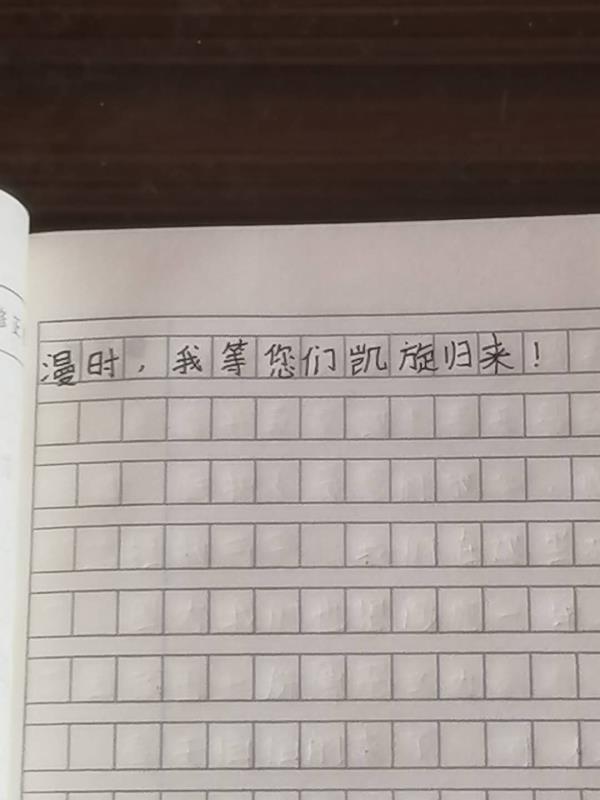 修正
漫时,我等您们凯旋归来!